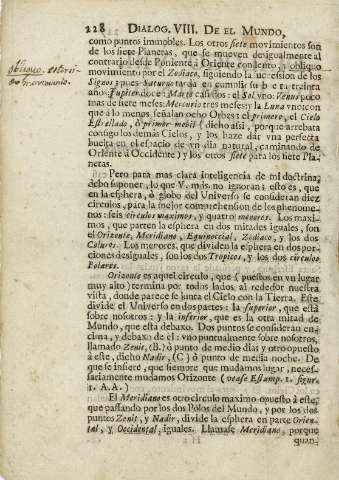 228 DIALOG. VIII. DE EL MUNDO,
como puntos immobles. Los otros siete movimientos son
de los siete Planetas, que se mueven desigualmente al
contrario desde Poniente à Oriente con lento, y obliquo
movimiento por el Zodiaco, siguiendo la sucession de los
Signos; pues Saturno tarda en cumplir su trenta
años: Jupiter doce: Marte casi dos: el Sol vno: Venus poco
mas de siete meses: Mercurio tres meses: y la Luna vno: con
que à lo menos señalan ocho Orbes: el primero, el Cielo
Estrellado, ò primer mobil (dicho assi, porque arrebata
consigo los demàs Cielos, y los haze dàr vna perfecta
buelta en el espacio de vn dia natural, caminando de
Oriente à Occidente) y los otros siete para los siete Pla-
netas.
Pero para mas clara inteligencia de mi doctrina,
debo suponer, lo que V. mds. no ignoran: esto es, que
en la esphera, ò globo del Universo se consideran diez
circulos, para la mejor comprehension de los phenome-
nos: seis circulos maximos, y quatro menores. Los maxi-
mos, que parten la esphera en dos mitades iguales, son
el Orizonte, Meridiano, Equinoccial, Zodiaco, y los dos
Coluros. Los menores, que dividen la esphera en dos por-
ciones desiguales, son los dos Tropicos, y los dos circulos
Polares.
Orizonte es aquel circulo, que (puestos en vn lugar
muy alto) termina por todos lados al rededor nuestra
vista, donde parece se junta el Cielo con la Tierra. Este
divide el Universo en dos partes: la superior, que està
sobre nosotros: y la inferior, que es la otra mitad de
Mundo, que està debaxo. Dos puntos se consideran en-
cima, y debaxo de èl: vno puntualmente sobre nosotros,
llamado Zenit, (B.) ò punto de medio dia; y otro opuesto
à este, dicho Nadir, (C) ò punto de media noche. De
que se infiere, que siempre que mudamos lugar, neces-
sariamente mudamos Orizonte (vease Estamp. 1. figur.
1. A.A.)
El Meridiano es otro circulo maximo opuesto à este,
que passando por los dos Polos del Mundo, y por los dos
puntos Zenit, y Nadir, divide la esphera en parte Orien-
tal, y Occidental, iguales. Llamase Meridiano, porque
quan-